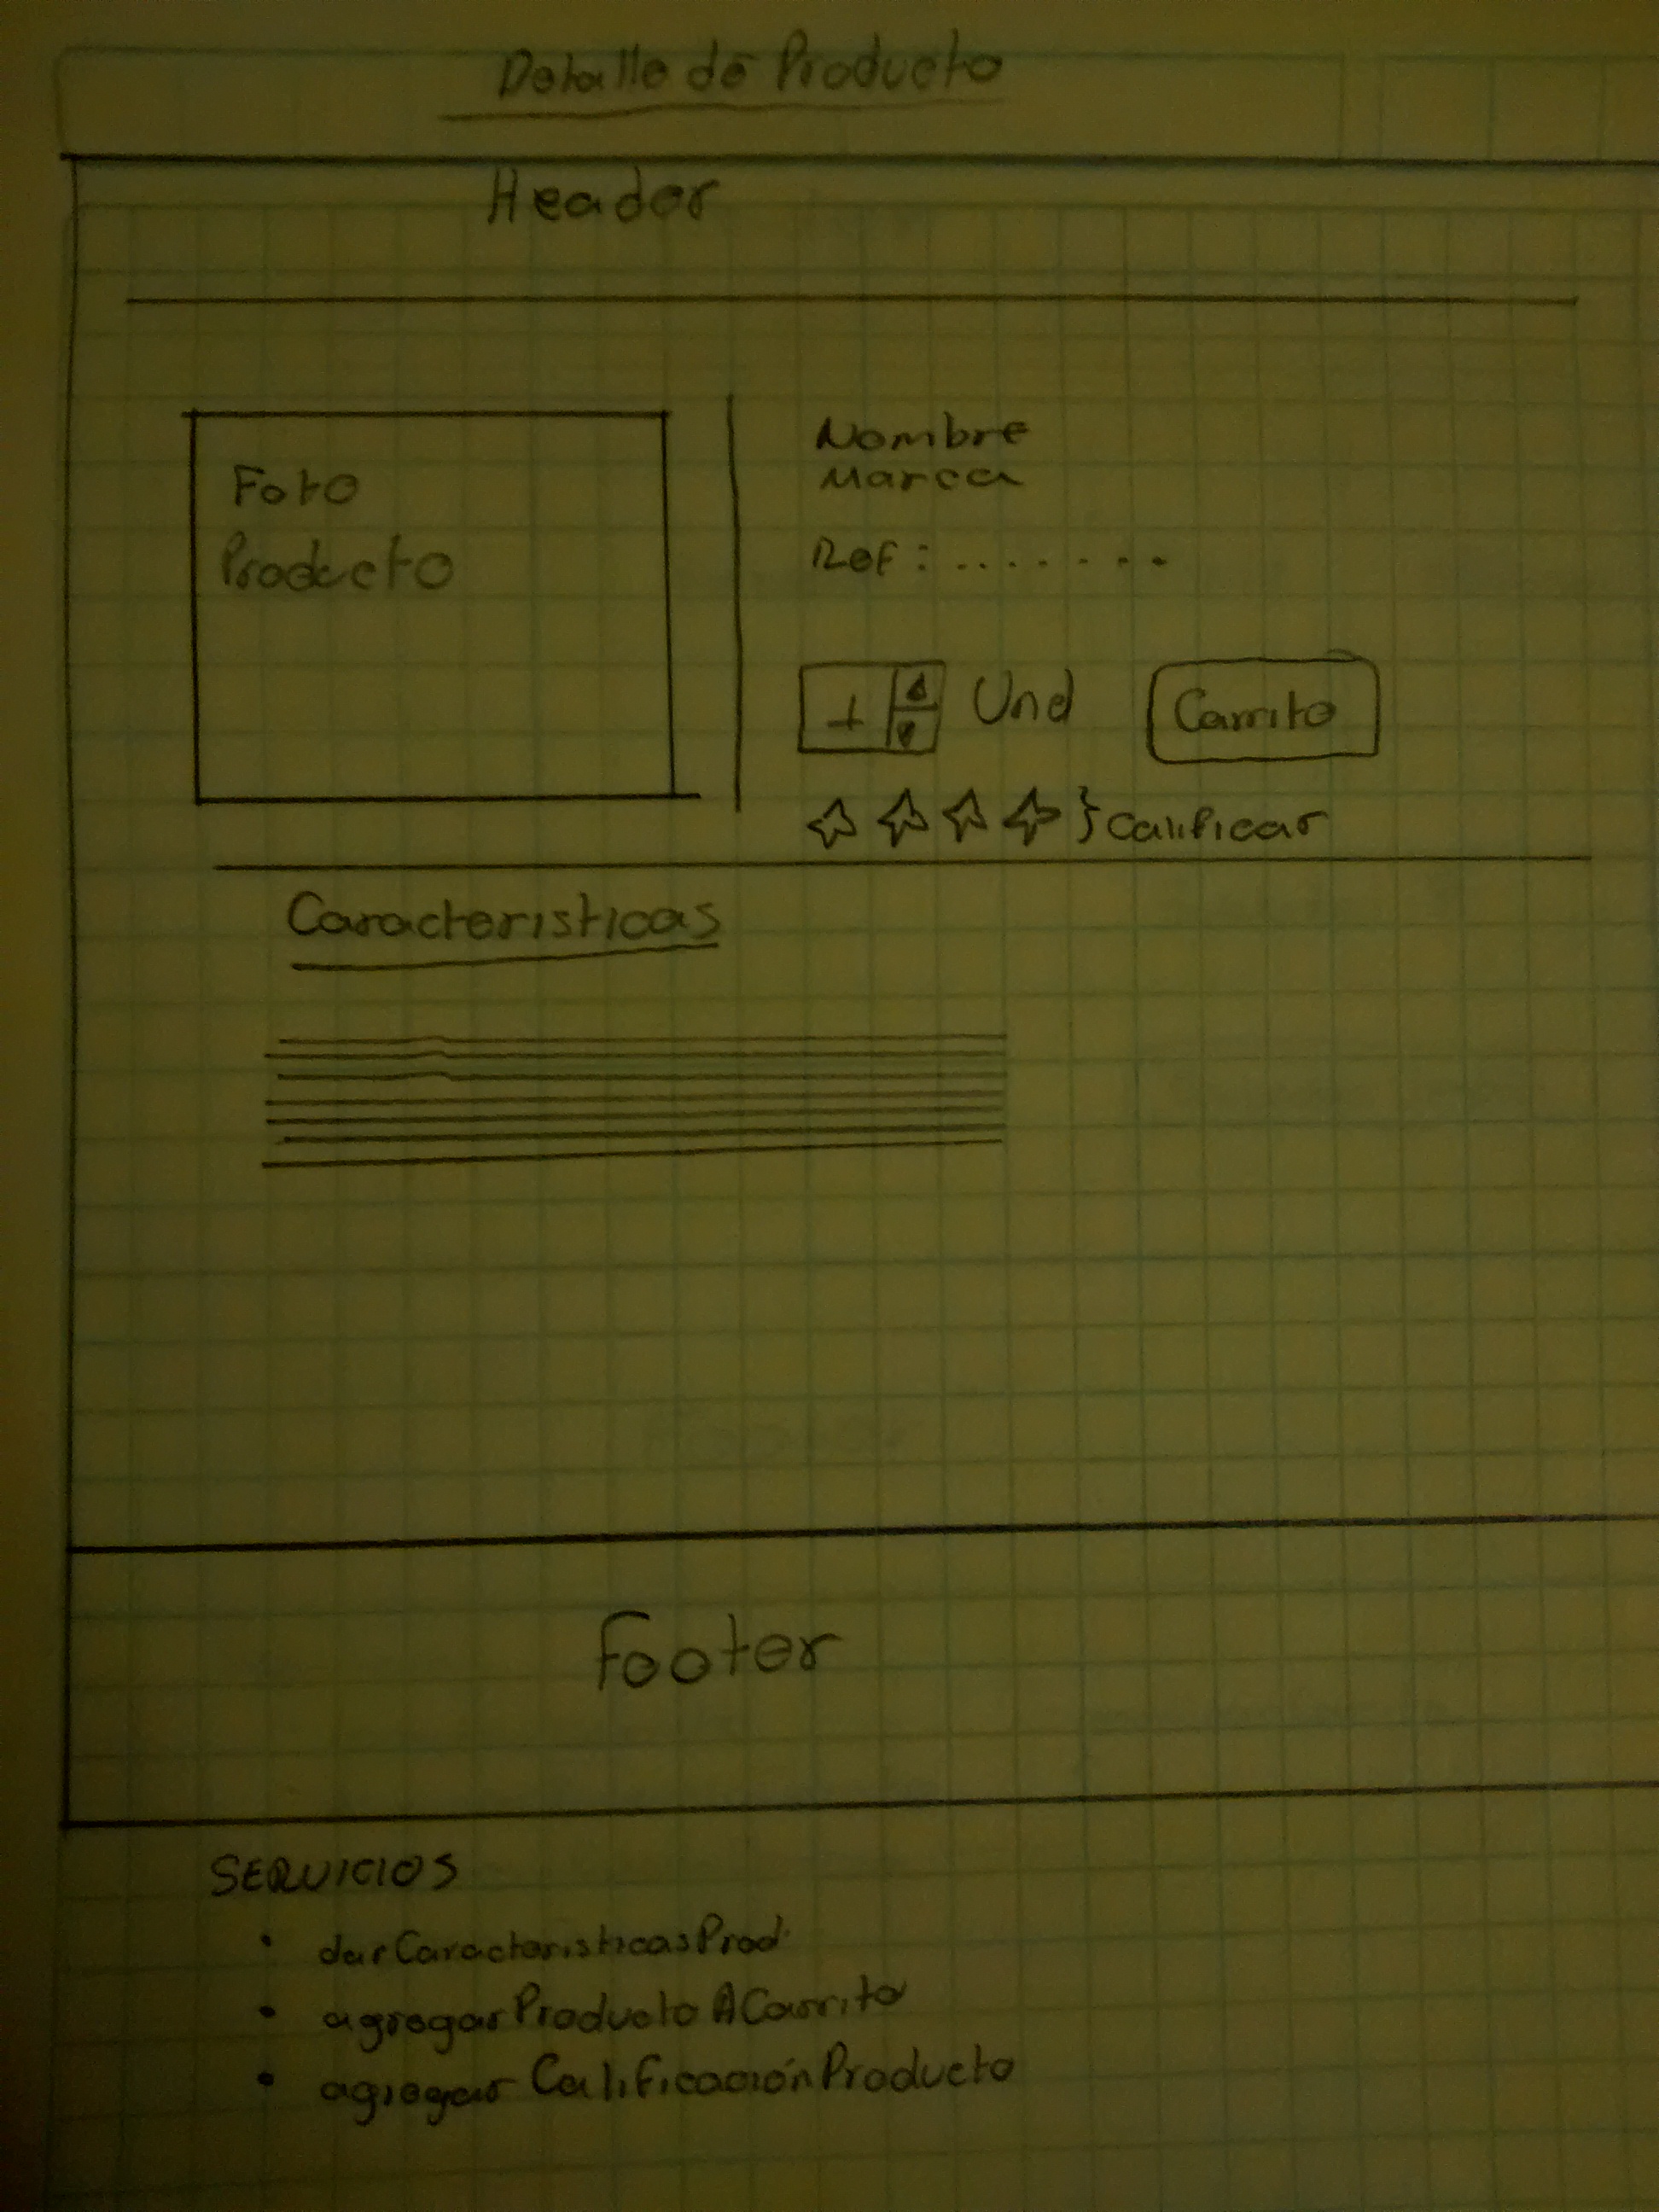 Detalle de Producto
Header
Foto
Producto
Nombre
Marca
Ref : .......
1 Und Carrito
} Calificar
Caracteristicas
Footer
SERVICIOS
• darCaracteristicasProd.
• agregarProductoACarrito
• agregarCalificaciónProducto